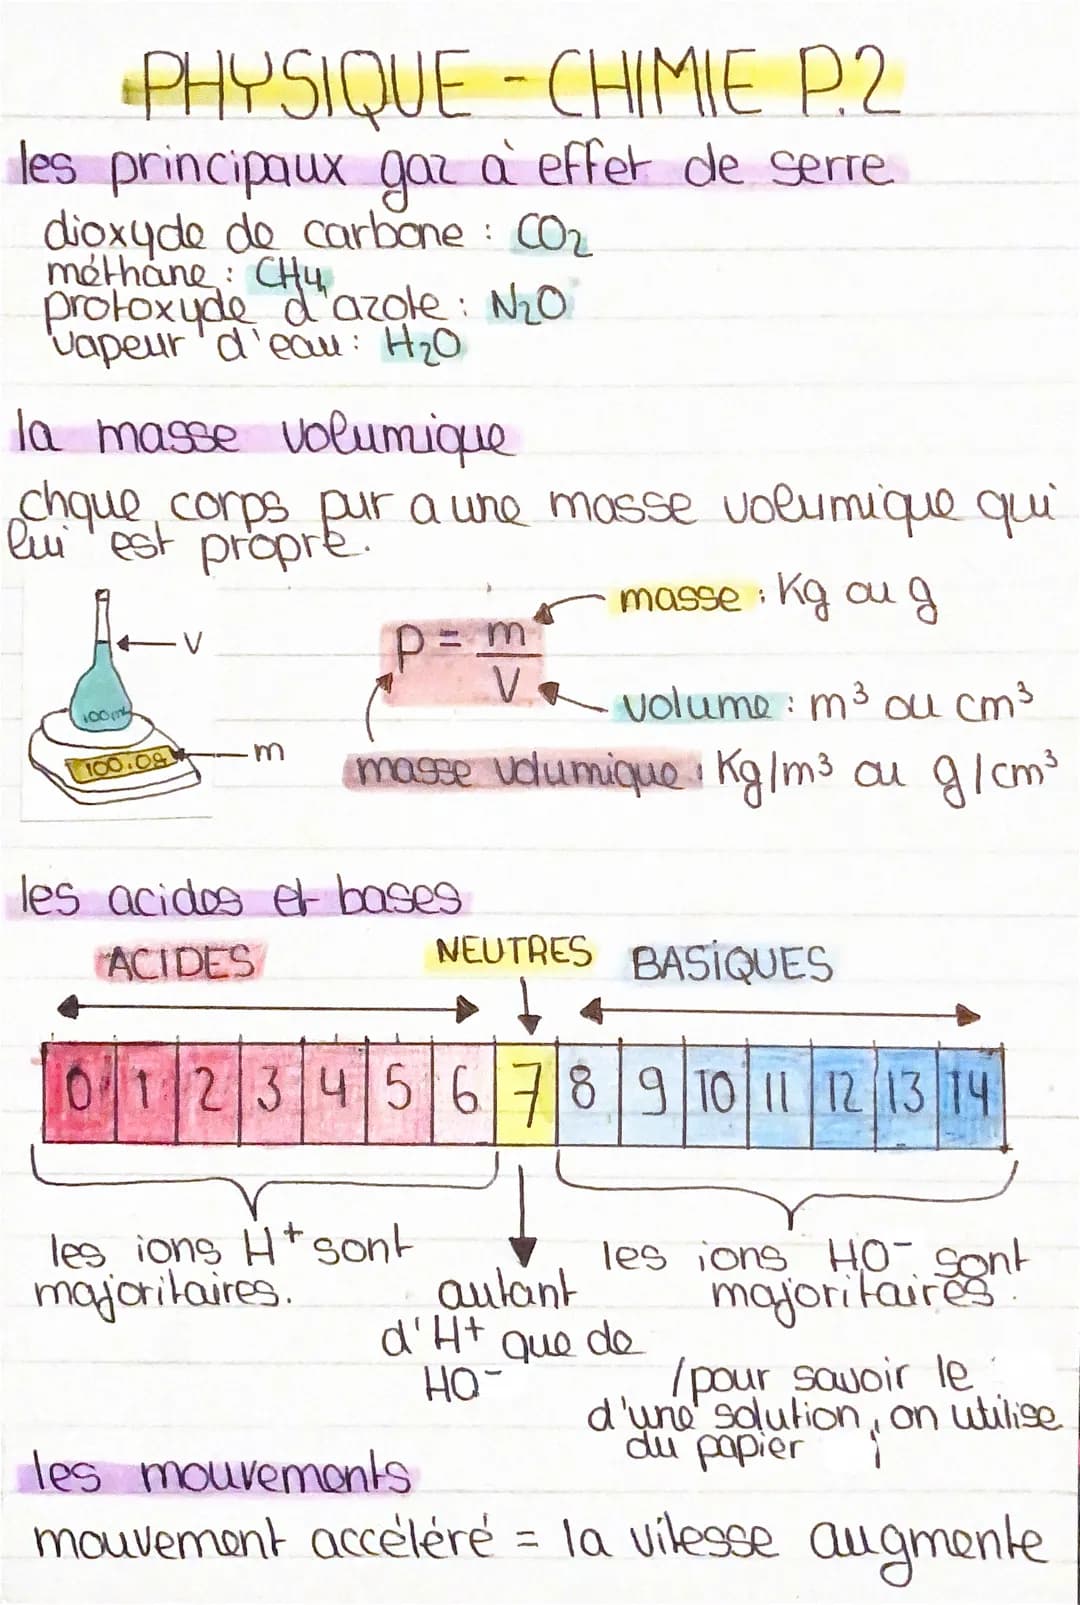 PHYSIQUE - CHIMIE P.2
les principaux gaz à effet de serre
dioxyde de carbone : CO₂
méthane : CH₄
protoxyde d'azote : N₂O
vapeur d'eau : H₂O
la masse volumique
chque corps pur a une masse volumique qui
lui est propre.
masse : Kg ou g
V
ρ = m
V
100mL
volume : m³ ou cm³
m
100.0g
masse volumique : Kg/m³ ou g/cm³
les acides et bases
ACIDES NEUTRES BASiQUES
0 1 2 3 4 5 6 7 8 9 10 11 12 13 14
les ions H⁺ sont
majoritaires.
autant
d'H+ que de
HO⁻
les ions HO⁻ sont
majoritaires.
/pour savoir le
d'une solution, on utilise
du papier
les mouvements
mouvement accéléré = la vitesse augmente